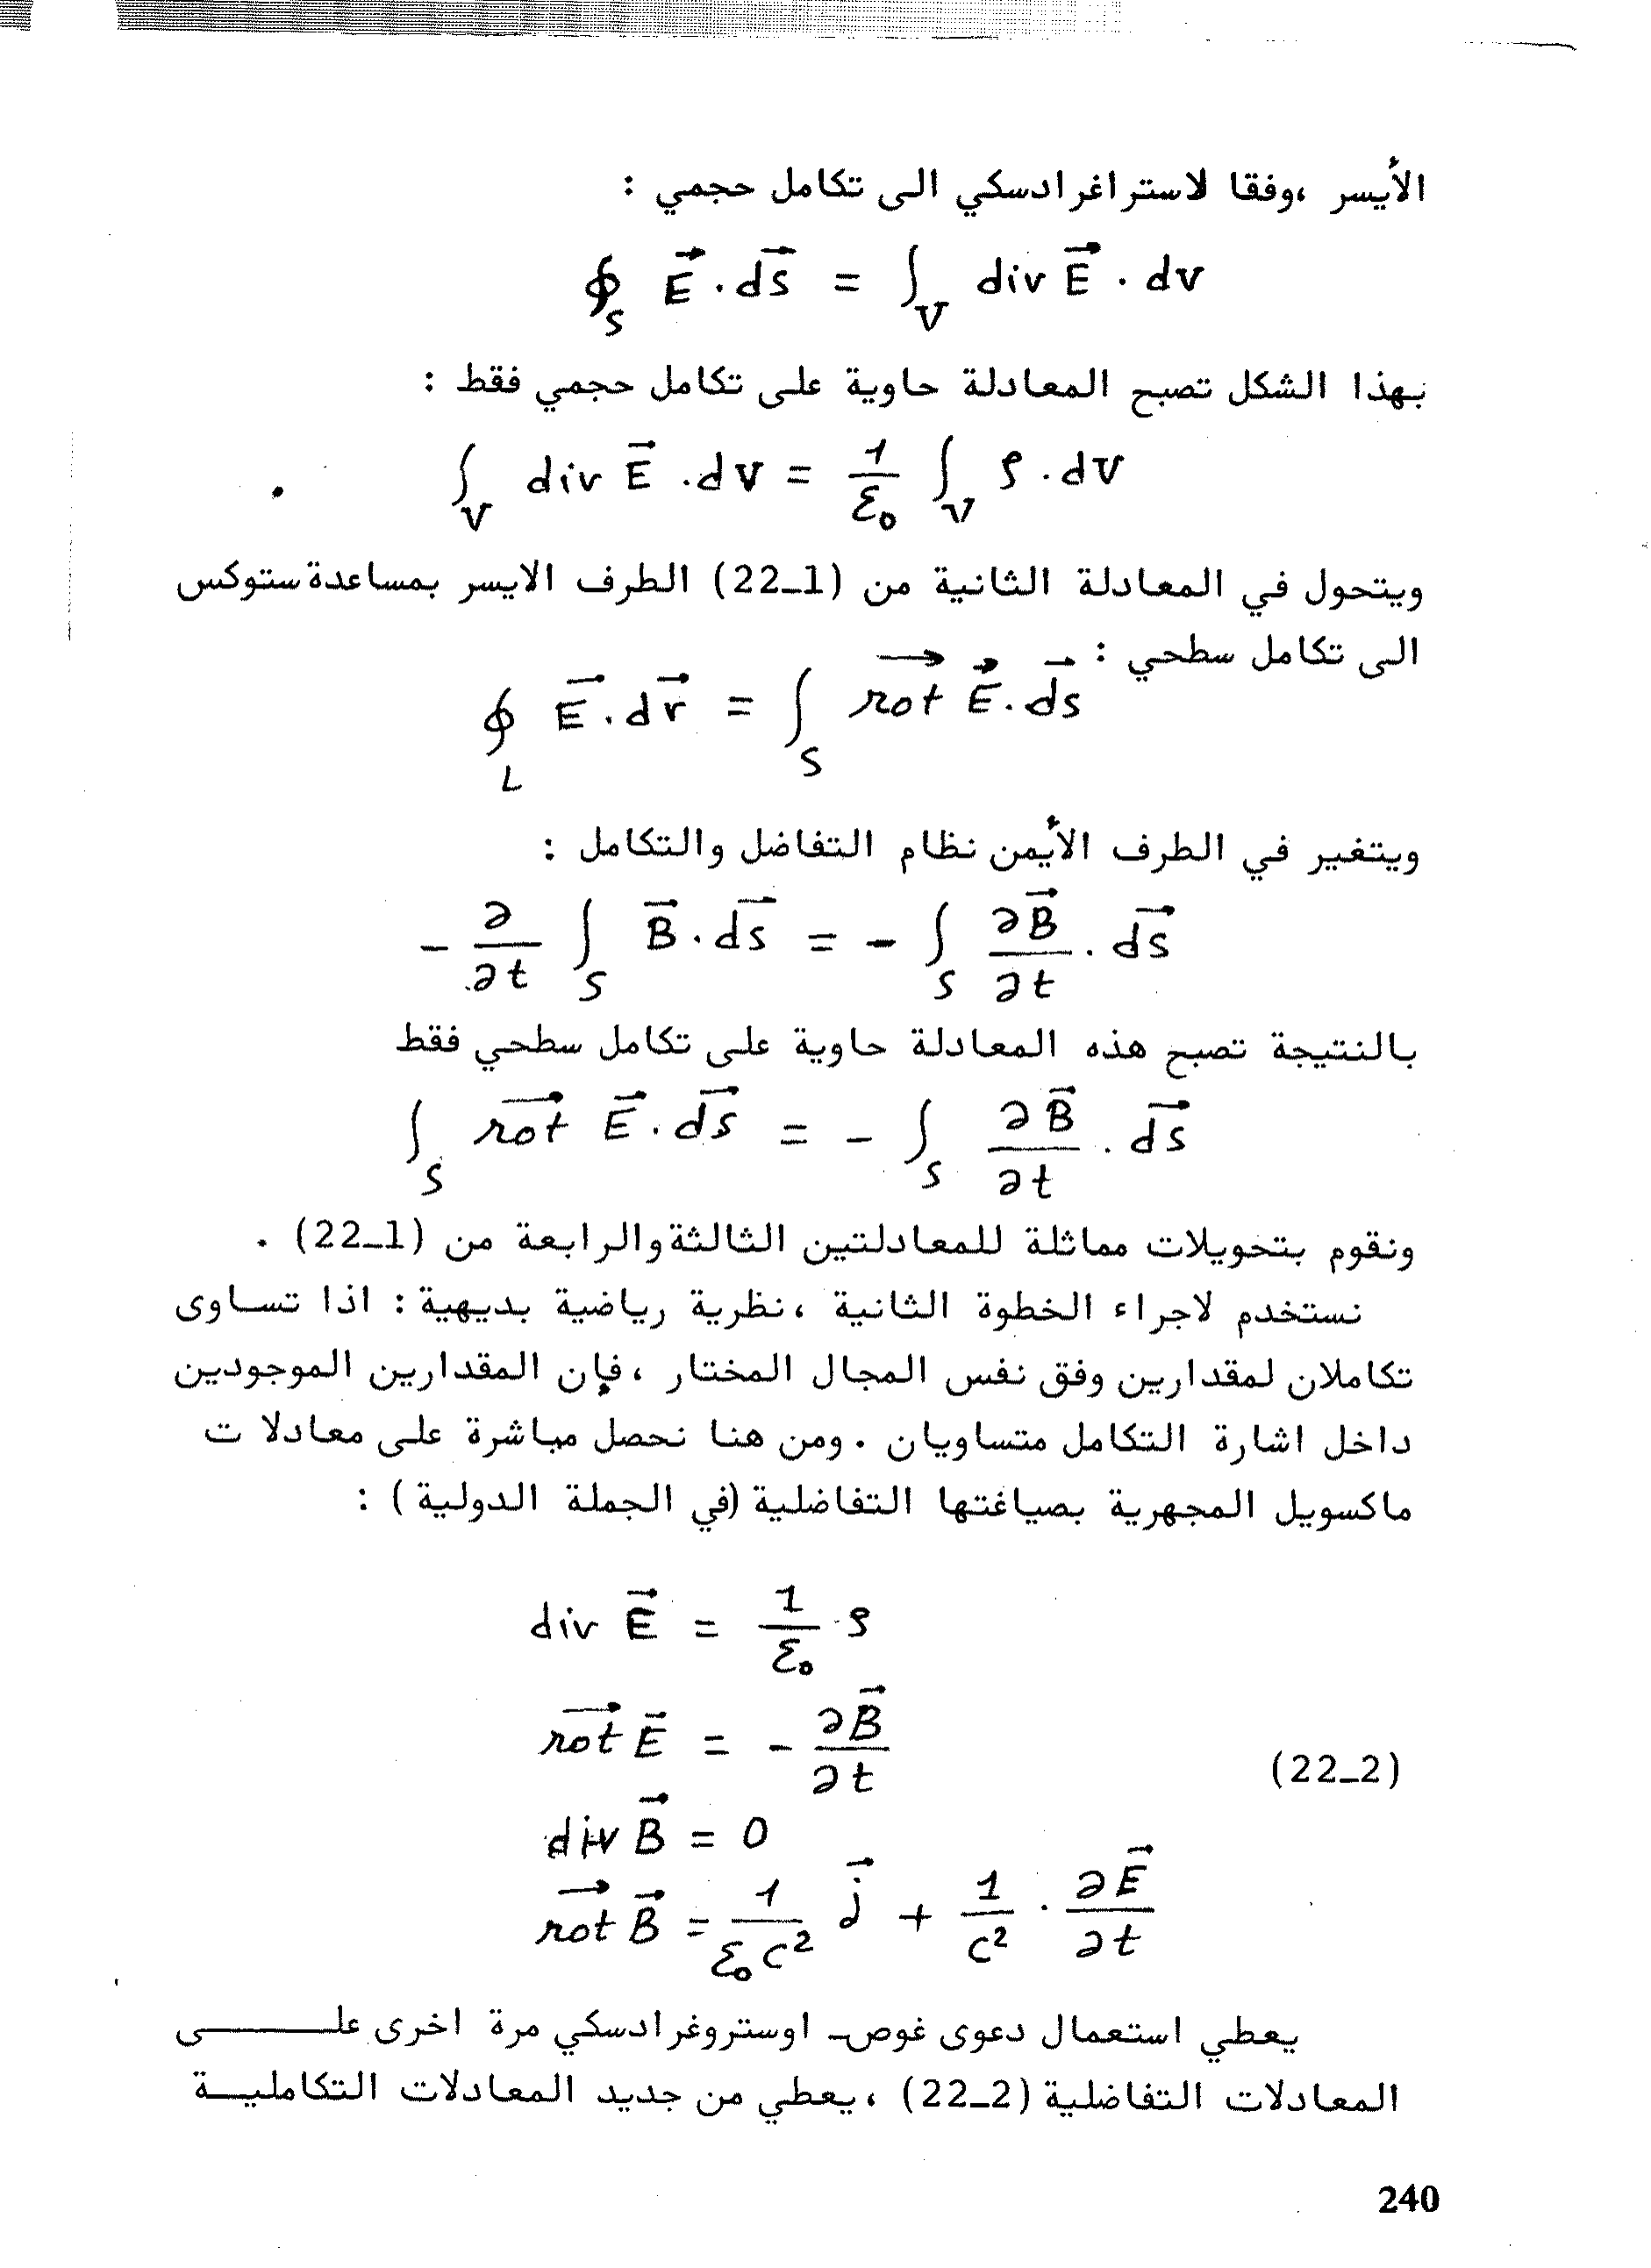 الأيسر ،وفقا لاستراغرادسكي الى تكامل حجمي :
∮_S E⃗ . ds⃗ = ∫_V div E⃗ . dv
بهذا الشكل تصبح المعادلة حاوية على تكامل حجمي فقط :
∫_V div E⃗ . dV = 1/ε₀ ∫_V ρ . dV
ويتحول في المعادلة الثانية من (22_1) الطرف الايسر بمساعدة ستوكس
الى تكامل سطحي :
∮_L E⃗ . dr⃗ = ∫_S rot⃗ E⃗ . ds⃗
ويتغير في الطرف الأيمن نظام التفاضل والتكامل :
- ∂/∂t ∫_S B⃗ . ds⃗ = - ∫_S ∂B⃗/∂t . ds⃗
بالنتيجة تصبح هذه المعادلة حاوية على تكامل سطحي فقط
∫_S rot⃗ E⃗ . ds⃗ = - ∫_S ∂B⃗/∂t . ds⃗
ونقوم بتحويلات مماثلة للمعادلتين الثالثة والرابعة من (22_1) .
نستخدم لاجراء الخطوة الثانية ،نظرية رياضية بديهية : اذا تساوى
تكاملان لمقدارين وفق نفس المجال المختار ،فإن المقدارين الموجودين
داخل اشارة التكامل متساويان . ومن هنا نحصل مباشرة على معادلات
ماكسويل المجهرية بصياغتها التفاضلية (في الجملة الدولية ) :
div E⃗ = 1/ε₀ . ρ
rot⃗ E⃗ = - ∂B⃗/∂t
(22_2)
div B⃗ = 0
rot⃗ B⃗ = 1/ε₀c² j⃗ + 1/c² . ∂E⃗/∂t
يعطي استعمال دعوى غوص_ اوستروغرادسكي مرة اخرى علـــــى
المعادلات التفاضلية (22_2) ،يعطي من جديد المعادلات التكامليـــة
240